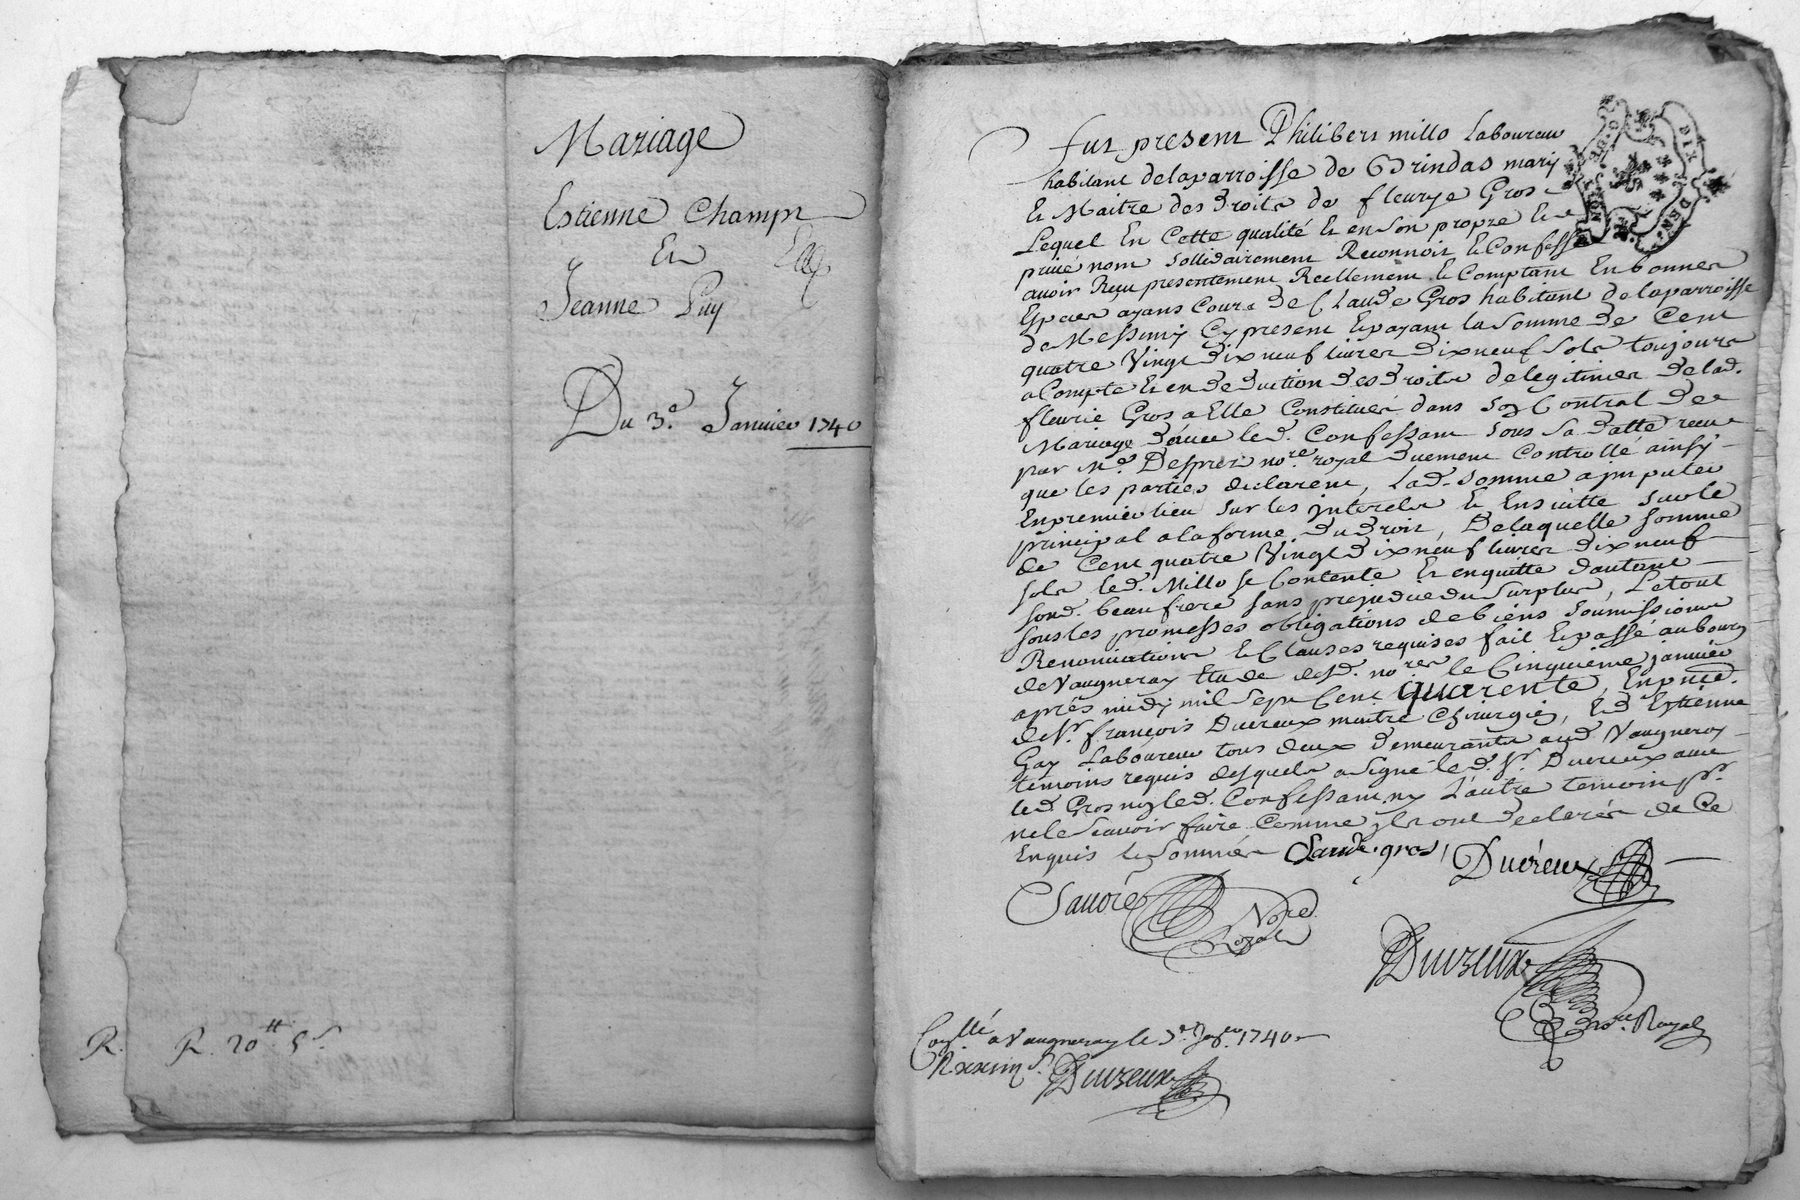 Mariage
Estienne Champt
Et
Jeanne Puy
Du 3.e Janvier 1740
R. R. 20tt 5s.
fut present Philibert millo Laboureur
habitant delaparroisse de Brindas mary
Et Maitre des droits de fleurye Gros
Lequel En Cette qualité Et en son propre Et
privé nom sollidairement Reconnoit Et Confesse
avoir Reçu presentement Reellement Et Comptant En bonnes
Especes ayans Cours de Claude Gros habitant delaparroisse
de Messimy Cy present Et payant la Somme de Cent
quatre Vingt dix neuf livres dixneuf sols toujours
a Compte Et en deduction des droits de legitimes delad.
fleurie Gros a Elle Constitués dans son Contrat de
Mariage d'avec led. Confessant sous sa datte receu
par Me Desprez nore. royal duement Controllé ainsy
que les parties declarent, lad. somme a jmputer
En premier lieu sur les jnterets Et Ensuitte sur le
principal a la forme du droit, De laquelle somme
de Cent quatre Vingt dix neuf livres dix neuf
sols led. Millo se Contente Et en quitte d'autant
sond. beaufrere sans prejudice du surplus, Le tout
sous les promesses obligations de biens soumissions
Renonciations Et Clauses requises fait Et passé au bourg
de Vaugneray Etude desd. nores le Cinquieme janvier
aprés midy mil sept Cent quarente, En pnce.
de Sr. françois Duvreux maitre Chirurgien, Et d'Estienne
Gay Laboureur tous deux demeurants aud. Vaugneray
temoins requis desquels a signé led. Sr. Duvreux avec
led. Gros non led. Confessant ny L'autre temoin pr.
ne le Scavoir faire Comme jls ont declarés de Ce
Enquis Et Sommés Claude gros, Duvreux
Savoré Nore. Royal
Duvreux
nore. Royal
Conllé a Vaugneray le 5e Janer. 1740
Duvreux